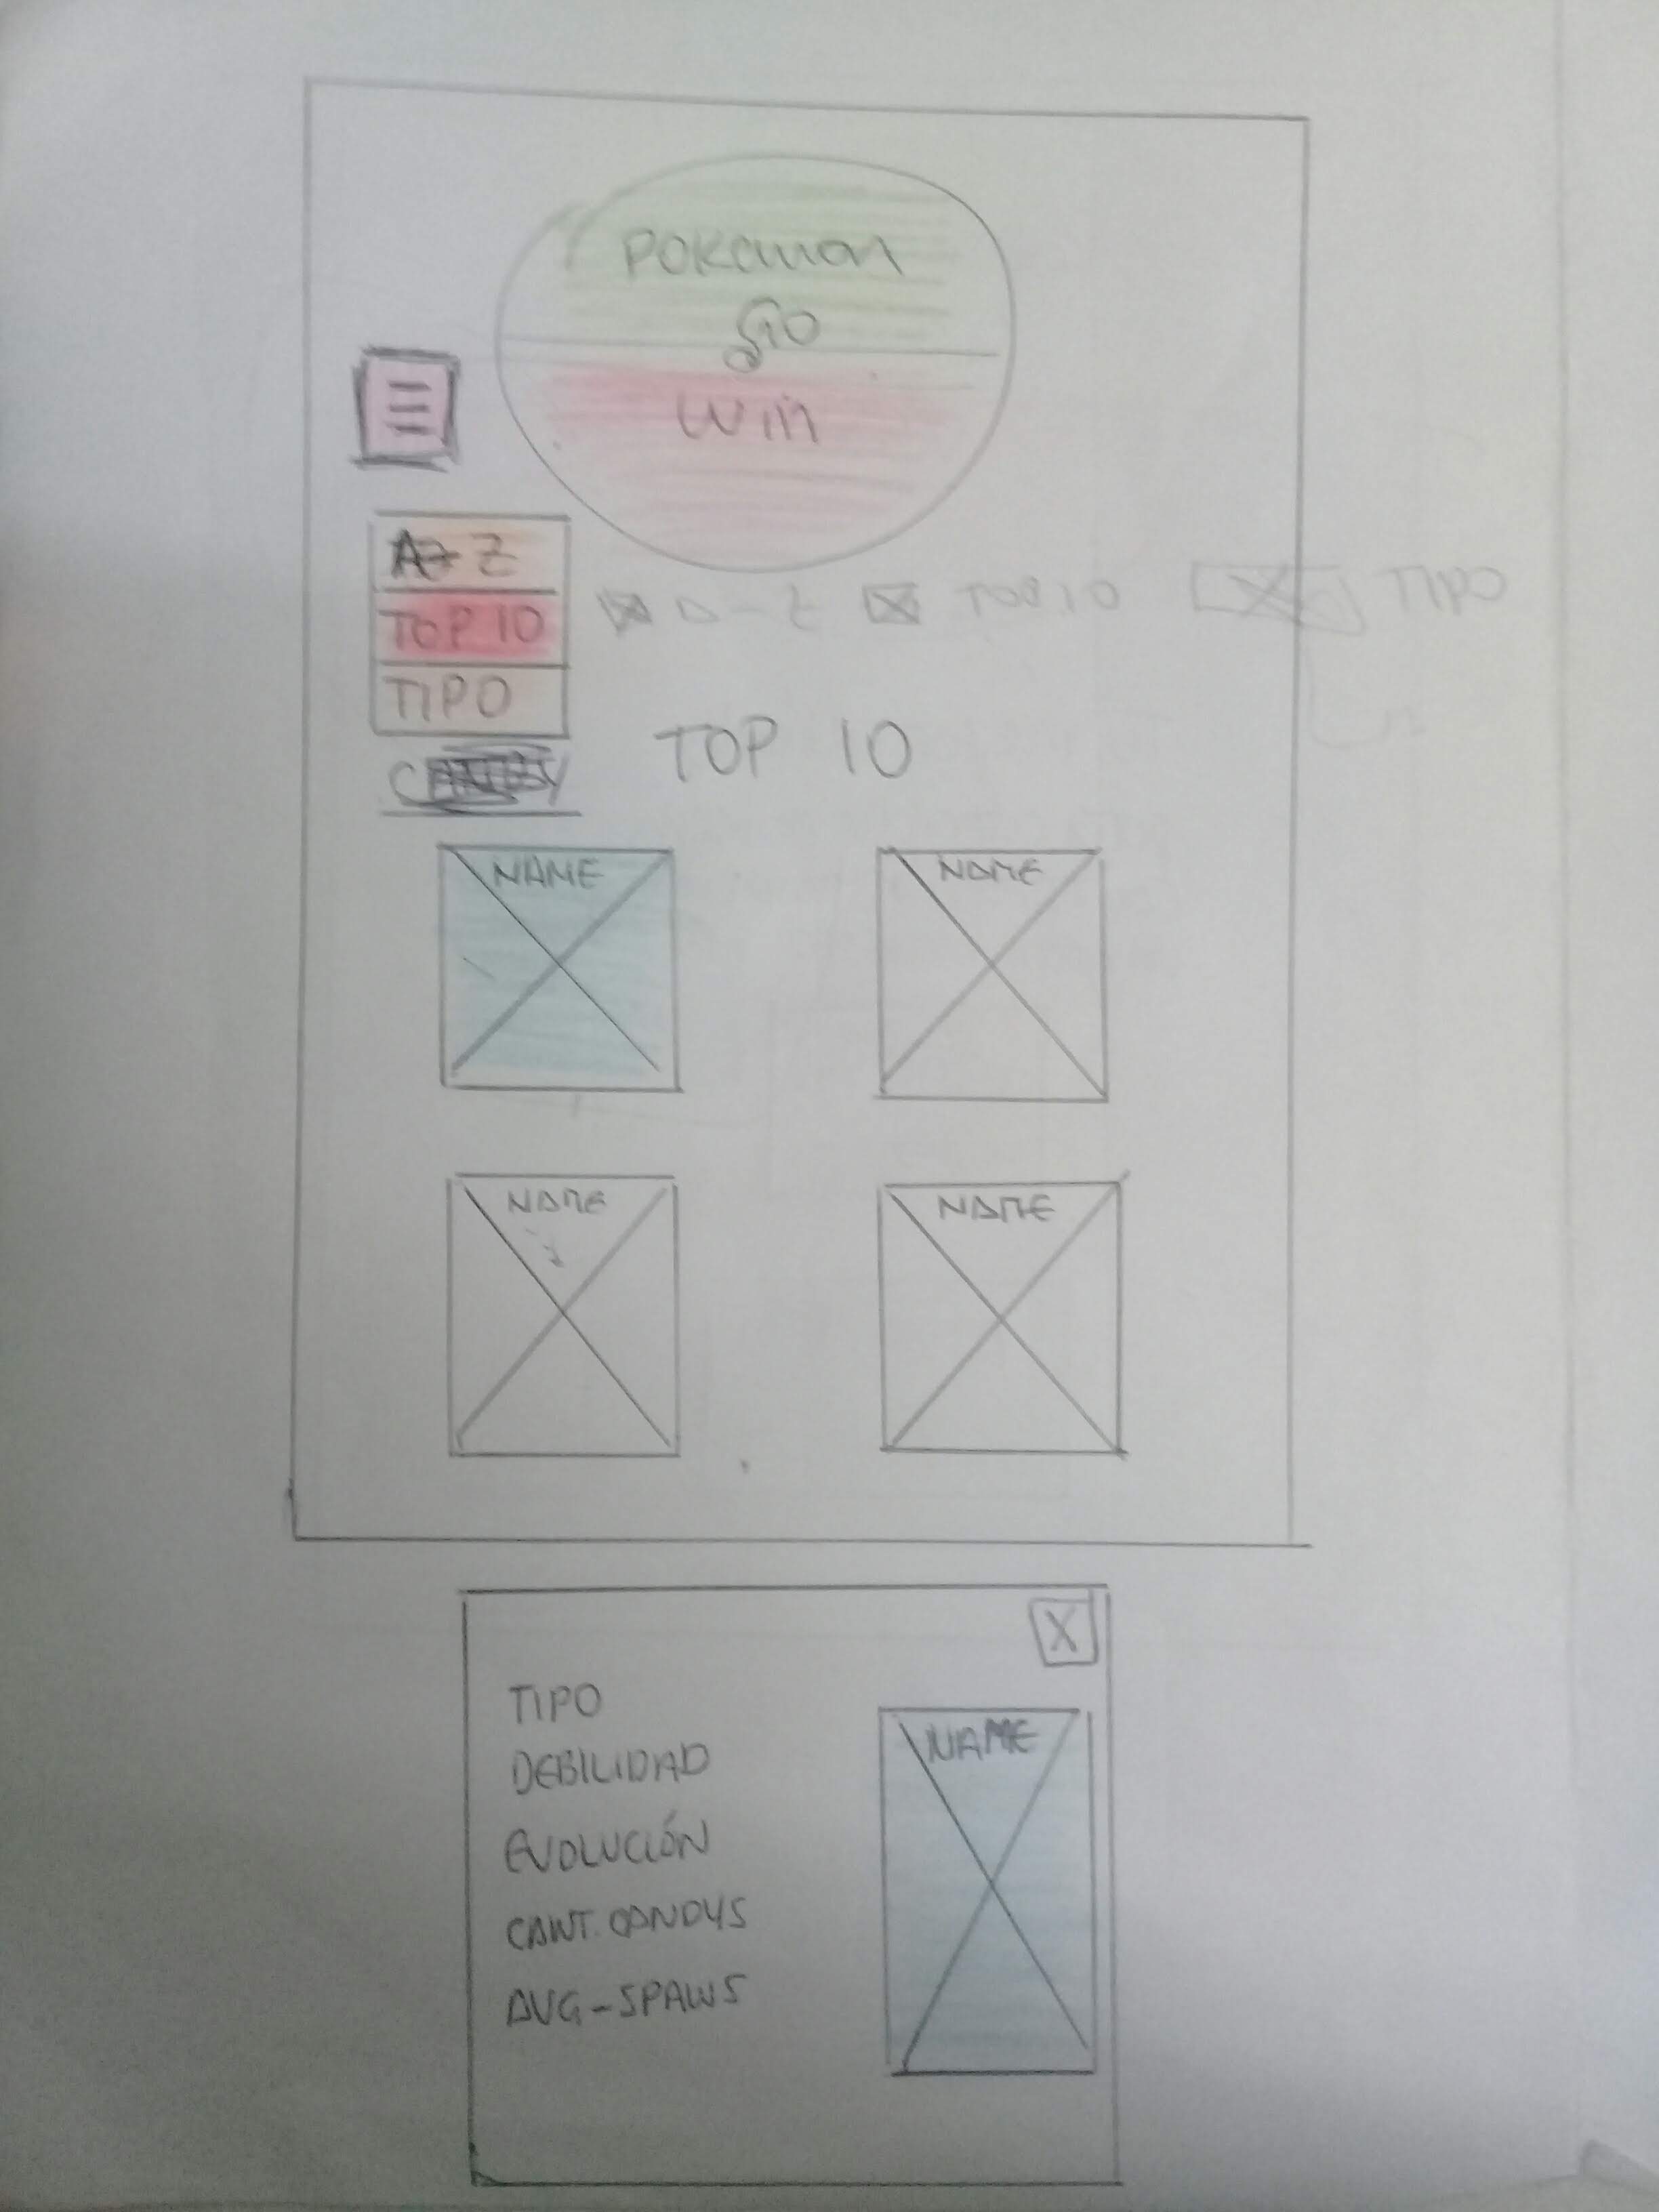 POKEMON
GO
WIN
A-Z
TOP 10
TIPO
A-Z TOP 10 TIPO
TOP 10
NAME NAME
NAME NAME
X
TIPO
DEBILIDAD
EVOLUCIÓN
CANT. CANDYS
AVG-SPAWS
NAME